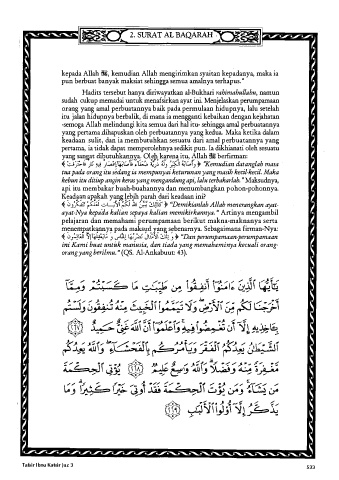 2. SURAT AL BAQARAH
kepada Allah ﷻ, kemudian Allah mengirimkan syaitan kepadanya, maka ia
pun berbuat banyak maksiat sehingga semua amalnya terhapus."
Hadits tersebut hanya diriwayatkan al-Bukhari rahimahullahu, namun
sudah cukup memadai untuk menafsirkan ayat ini. Menjelaskan perumpamaan
orang yang amal perbuatannya baik pada permulaan hidupnya, lalu setelah
itu jalan hidupnya berbalik, di mana ia mengganti kebaikan dengan kejahatan
semoga Allah melindungi kita semua dari hal itu- sehingga amal perbuatannya
yang pertama dihapuskan oleh perbuatannya yang kedua. Maka ketika dalam
keadaan sulit, dan ia membutuhkan sesuatu dari amal perbuatannya yang
pertama, ia tidak dapat memperolehnya sedikit pun. Ia dikhianati oleh sesuatu
yang sangat dibutuhkannya. Oleh karena itu, Allah ﷻ berfirman:
"Kemudian datanglah masa
tua pada orang itu sedang ia mempunyai keturunan yang masih kecil-kecil. Maka
kebun itu ditiup angin keras yang mengandung api, lalu terbakarlah." Maksudnya,
api itu membakar buah-buahannya dan menumbangkan pohon-pohonnya.
Keadaan apakah yang lebih parah dari keadaan ini?
﴿ كَذَٰلِكَ يُبَيِّنُ اللَّهُ لَكُمُ الْآيَاتِ لَعَلَّكُمْ تَتَفَكَّرُونَ ﴾ "Demikianlah Allah menerangkan ayat-
ayat-Nya kepada kalian supaya kalian memikirkannya." Artinya mengambil
pelajaran dan memahami perumpamaan berikut makna-maknanya serta
menempatkannya pada maksud yang sebenarnya. Sebagaimana firman-Nya:
﴿ وَتِلْكَ الْأَمْثَالُ نَضْرِبُهَا لِلنَّاسِ وَمَا يَعْقِلُهَا إِلَّا الْعَالِمُونَ ﴾ "Dan perumpamaan-perumpamaan
ini Kami buat untuk manusia, dan tiada yang memahaminya kecuali orang-
orang yang berilmu." (QS. Al-Ankabuut: 43).
يَٰٓأَيُّهَا ٱلَّذِينَ ءَامَنُوٓا۟ أَنفِقُوا۟ مِن طَيِّبَٰتِ مَا كَسَبْتُمْ وَمِمَّآ
أَخْرَجْنَا لَكُم مِّنَ ٱلْأَرْضِ وَلَا تَيَمَّمُوا۟ ٱلْخَبِيثَ مِنْهُ تُنفِقُونَ وَلَسْتُم
بِـَٔاخِذِيهِ إِلَّآ أَن تُغْمِضُوا۟ فِيهِ وَٱعْلَمُوٓا۟ أَنَّ ٱللَّهَ غَنِىٌّ حَمِيدٌ ﴿٢٦٧﴾
ٱلشَّيْطَٰنُ يَعِدُكُمُ ٱلْفَقْرَ وَيَأْمُرُكُم بِٱلْفَحْشَآءِ وَٱللَّهُ يَعِدُكُم
مَّغْفِرَةً مِّنْهُ وَفَضْلًا وَٱللَّهُ وَٰسِعٌ عَلِيمٌ ﴿٢٦٨﴾ يُؤْتِى ٱلْحِكْمَةَ
مَن يَشَآءُ وَمَن يُؤْتَ ٱلْحِكْمَةَ فَقَدْ أُوتِىَ خَيْرًا كَثِيرًا وَمَا
يَذَّكَّرُ إِلَّآ أُو۟لُوا۟ ٱلْأَلْبَٰبِ ﴿٢٦٩﴾
Tafsir Ibnu Katsir Juz 3
533